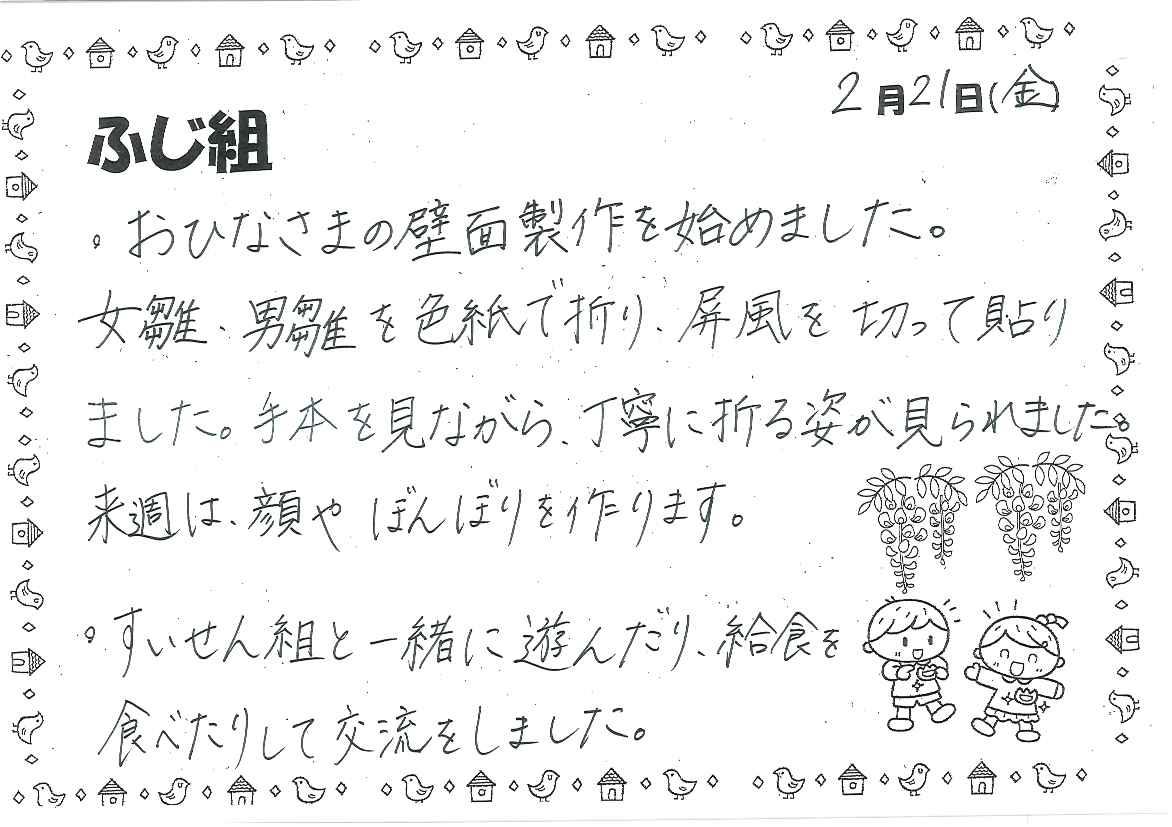 2月21日(金)
ふじ組
。おひなさまの壁面製作を始めました。
女雛、男雛を色紙で折り、屏風を切って貼り
ました。手本を見ながら、丁寧に折る姿が見られました。
来週は、顔やぼんぼりを作ります。
。すいせん組と一緒に遊んだり、給食を
食べたりして交流をしました。